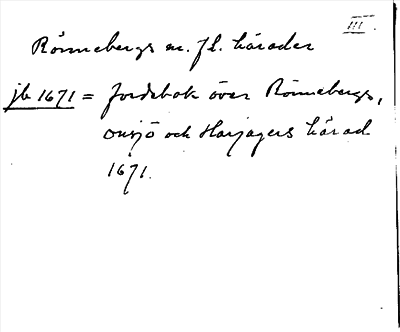 III.
Rönnebergs m. fl. härader
jb 1671 = Jordebok över Rönnebergs,
Onsjö och Harjagers härad
1671.